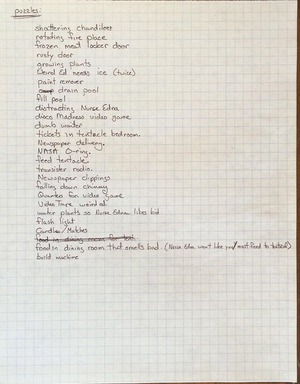 puzzles:
shattering chandilier
rotating fire place
frozen meat locker door
rusty door
growing plants
Dead Ed needs ice (twice)
paint remover
drain pool
fill pool
distracting Nurse Edna
disco Madness video game
dumb waiter
tickets in tentacle bedroom.
Newspaper delivery.
NASA O-ring.
feed tentacle
transister radio.
Newspaper clippings
falling down chimny
Quarter for video game
Video Tape weird ed
water plants so Nurse Edna likes kid
flash light
Candles/Matches
food in dining room for
food in dining room that smells bad. (Nurse Edna won't like you/
build machine